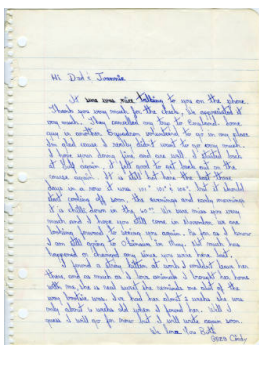 Hi Dad & Jimmie
It was nice talking to you on the phone.
Thank you very much for the check, we appreciated it
very much. They cancelled my trip to England. Some
guy in another Squadron volunteered to go in my place
I'm glad cause I really didn't want to go very much.
I hope your doing fine and are well. I started back
at
again. It is still hot here the last three
days in a row it was 101° 101° & 100°, but it should
start cooling off soon, the evenings and early mornings
it is chilly down in the 60's. We sure miss you very
much and I hope you still come in November, we are
looking forward to seeing you again. As far as I know
I am still going to Okinawa in May. Not much has
happened or changed any since you were here last.
I found a stray kitten at work I couldn't leave her
there, and as much as I love animals I brought her home
with me, she is real sweet she reminds me alot of the
way
was. I've had her about 2 weeks she was
only about 6 weeks old when I found her. Well I
guess I will go for now but I will write again soon.
We Love You Both
Cindy